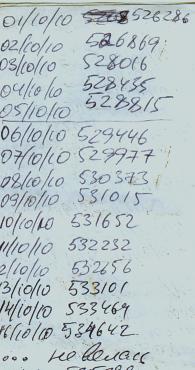 01/10/10 526286
02/10/10 526869
03/10/10 528016
04/10/10 528435
05/10/10 528815
06/10/10 529446
07/10/10 529977
08/10/10 530373
09/10/10 531015
10/10/10 531652
11/10/10 532232
12/10/10 532656
13/10/10 533101
14/10/10 533469
16/10/10 534642
... не